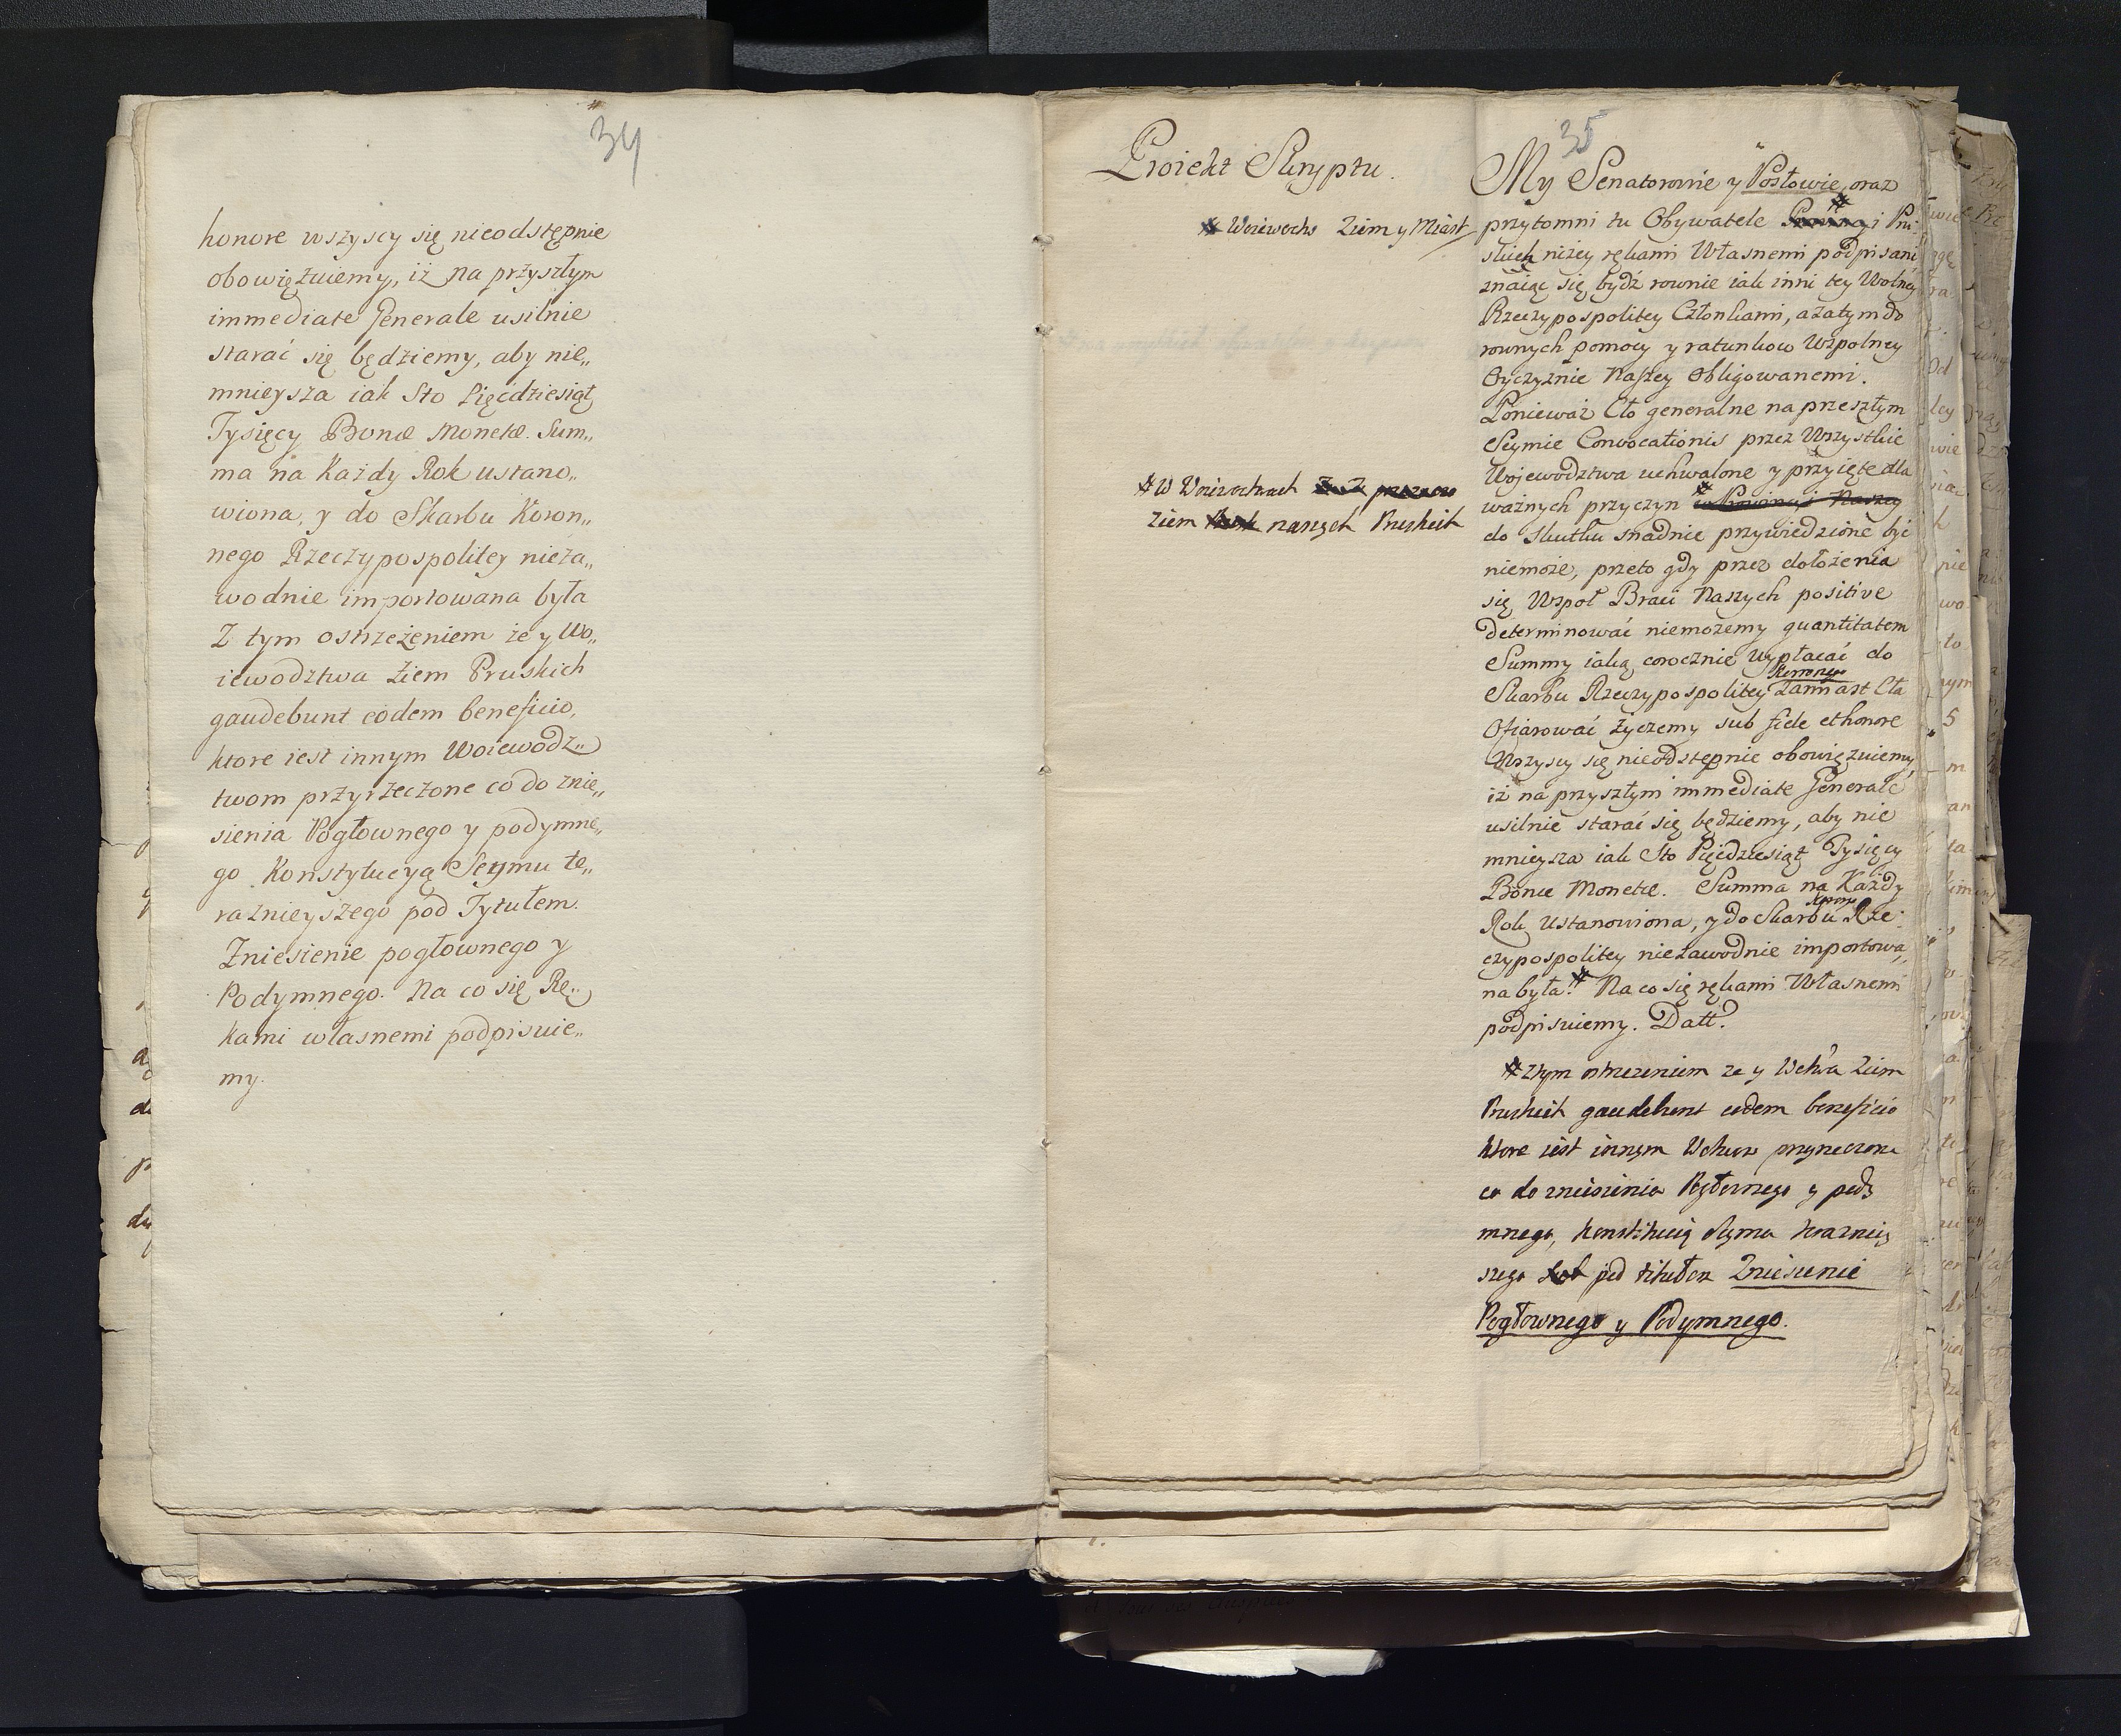 34
honore wszyscy się nieodstępnie
obowięzuiemy, iż na przyszłym
immediate Generale usilnie
starać się będziemy, aby nie„
mnieysza iak Sto Pięćdziesiąt
Tysięcy Bonæ Monetæ. Sum„
ma na Każdy Rok ustano„
wiona, y do Skarbu Koron„
nego Rzeczypospolitey nieza„
wodnie importowana była
Z tym ostrzeżeniem że y Wo„
iewodztwa Ziem Pruskich
gaudebunt eodem beneficio,
ktore iest innym Woiewodz„
twom przyrzeczone co do znie„
sienia Pogłownego y podymne„
go Konstytucyą Seymu te„
raznieyszego pod Tytułem.
Zniesienie pogłownego y
Podymnego. Na co się Rę„
kami własnemi podpisuie„
my.
35
Proiekt Skryptu.
# Woiewodz Ziem y Miast
# W Woiewodztwach
Ziem naszych Pruskich
My Senatorowie y Posłowie, oraz
przytomni tu Obywatele Prowincyi Pru-
skich niżey rękami Własnemi podpisani,
znaiąc się bydź rownie iak inni tey Wolney
Rzeczypospolitey Członkami, a zatym do
rownych pomocy y ratunkow Wspolney
Oyczyznie Naszey obligowanemi.
Ponieważ Cło generalne na przeszłym
Seymie Convocationis przez Wszystkie
Wojewodztwa uchwalone y przyięte dla
ważnych przyczyn # w Prowincyi Naszey
do skutku snadnie przywiedzione być
niemoże, przeto gdy przez dołożenia
się Wspoł Braci Naszych positive
determinować niemożemy quantitatem
Summy iaką corocznie wypłacać do
Skarbu Rzeczypospolitey Koronnego Zamiast Cła
Ofiarować życzemy sub fide et honore
Wszyscy się nieodstępnie obowięzuiemy,
iż na przyszłym immediate Generale
usilnie starać się będziemy, aby nie
mnieysza iak Sto Pięćdziesiąt Tysięcy
Bonæ Monetæ. Summa na Każdy
Rok Ustanowiona, y do Skarbu Koron Rze-
czypospolitey niezawodnie importowa„
na była. # Na co się rękami Własnemi
podpisuiemy. Datt.
# z tym ostrzezeniem ze y Wdtwa Ziem
Pruskich gaudebunt eodem beneficio
ktore iest innym Wdtwom przyrzeczone
co do zniesienia Pogłownego y pody
mnego, Konstitucią Seymu teraznieyszego
szego pod titułem Zniesienie
Pogłownego y Podymnego.